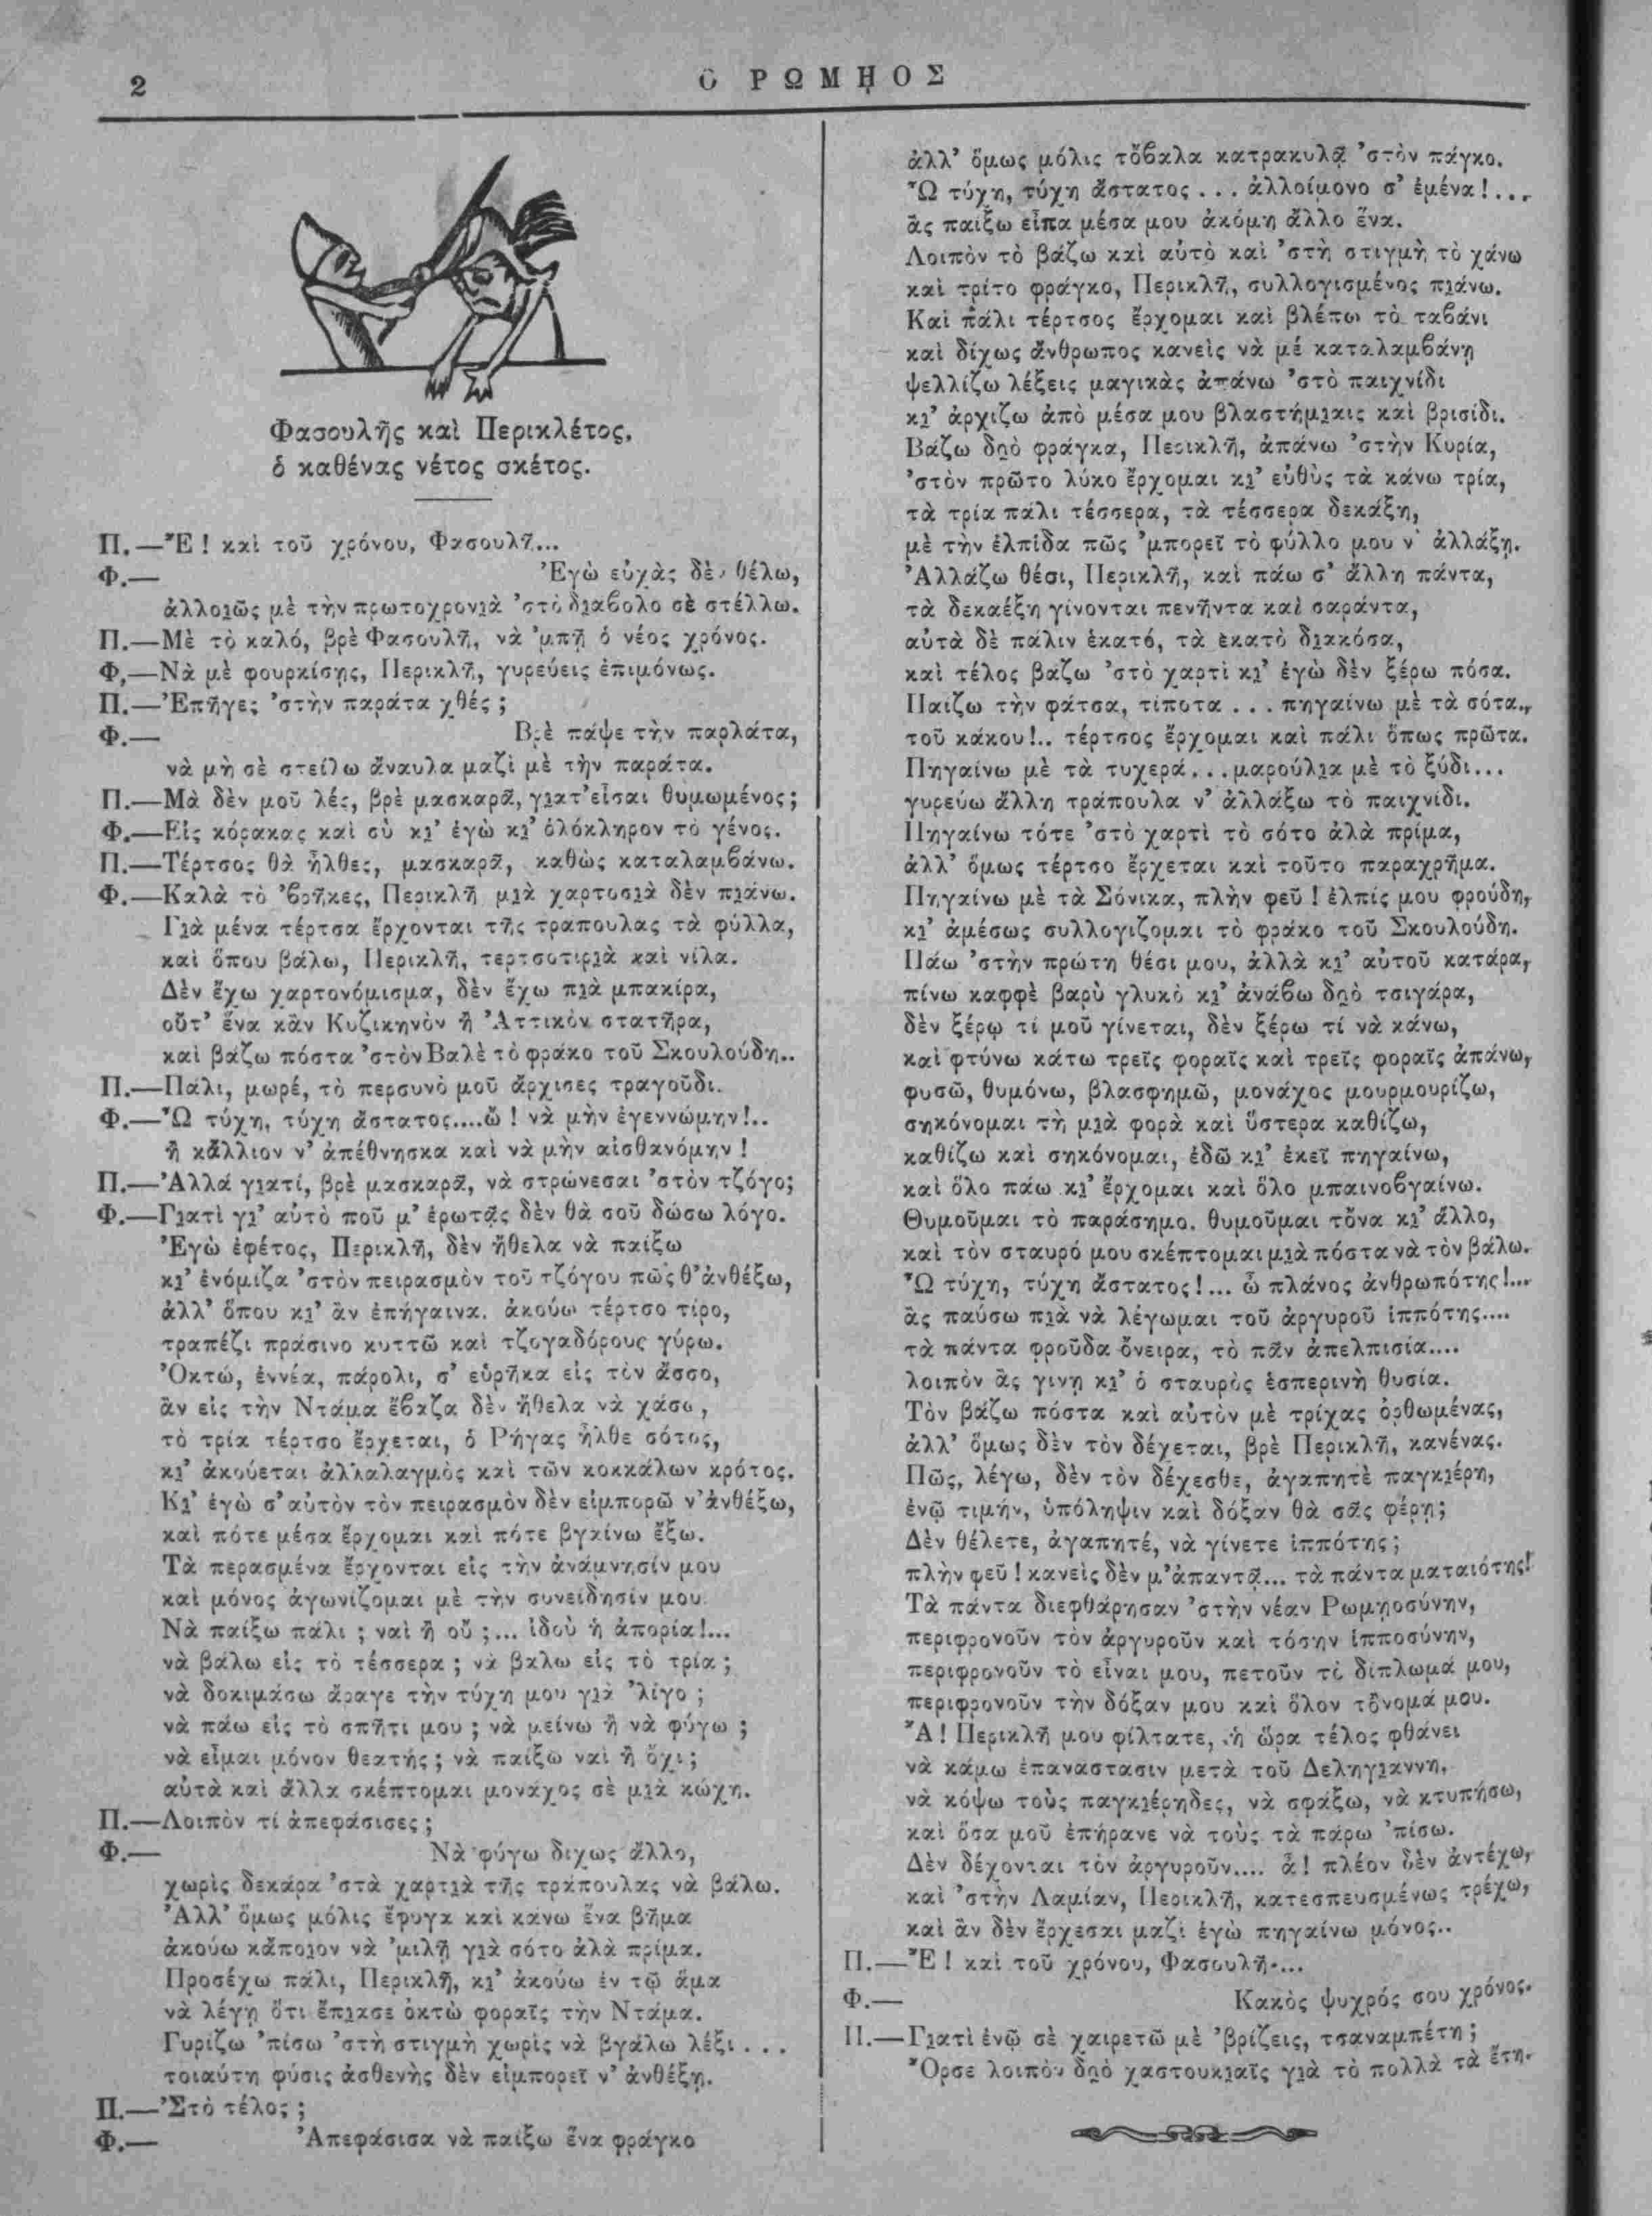 2
Ο ΡΩΜΗΟΣ
Φασουλῆς καὶ Περικλέτος,
ὁ καθένας νέτος σκέτος.
Π.—Ἔ! καὶ τοῦ χρόνου, Φασουλῆ...
Φ.— Ἐγὼ εὐχὰς δὲν θέλω,
ἀλλοιῶς μὲ τὴν πρωτοχρονιὰ 'στὸ διάβολο σὲ στέλλω.
Π.—Μὲ τὸ καλό, βρὲ Φασουλῆ, νὰ 'μπῇ ὁ νέος χρόνος.
Φ,—Νὰ μὲ φουρκίσῃς, Περικλῆ, γυρεύεις ἐπιμόνως.
Π.—Ἐπῆγες 'στὴν παράτα χθές;
Φ.— Βρὲ πάψε τὴν παρλάτα,
νὰ μὴ σὲ στείλω ἄναυλα μαζὶ μὲ τὴν παράτα.
Π.—Μὰ δὲν μοῦ λές, βρὲ μασκαρᾶ, γιατ' εἶσαι θυμωμένος;
Φ.—Εἰς κόρακας καὶ σὺ κι' ἐγὼ κι' ὁλόκληρον τὸ γένος.
Π.—Τέρτσος θὰ ἦλθες, μασκαρᾶ, καθὼς καταλαμβάνω.
Φ.—Καλὰ τὸ 'βρῆκες, Περικλῆ μιὰ χαρτοσιὰ δὲν πιάνω.
Γιὰ μένα τέρτσα ἔρχονται τῆς τράπουλας τὰ φύλλα,
καὶ ὅπου βάλω, Περικλῆ, τερτσοτιριὰ καὶ νίλα.
Δὲν ἔχω χαρτονόμισμα, δὲν ἔχω πιὰ μπακίρα,
οὔτ' ἕνα κἂν Κυζικηνὸν ἢ Ἀττικὸν στατῆρα,
καὶ βάζω πόστα 'στὸν Βαλὲ τὸ φράκο τοῦ Σκουλούδη..
Π.—Πάλι, μωρέ, τὸ περσυνὸ μοῦ ἄρχισες τραγοῦδι.
Φ.—Ὢ τύχη, τύχη ἄστατος....ὤ! νὰ μὴν ἐγεννώμην!..
ἢ κἄλλιον ν' ἀπέθνησκα καὶ νὰ μὴν αἰσθανόμην!
Π.—Ἀλλὰ γιατί, βρὲ μασκαρᾶ, νὰ στρώνεσαι 'στὸν τζόγο;
Φ.—Γιατὶ γι' αὐτὸ ποῦ μ' ἐρωτᾷς δὲν θὰ σοῦ δώσω λόγο.
Ἐγὼ ἐφέτος, Περικλῆ, δὲν ἤθελα νὰ παίξω
κι' ἐνόμιζα 'στὸν πειρασμὸν τοῦ τζόγου πῶς θ' ἀνθέξω,
ἀλλ' ὅπου κι' ἂν ἐπήγαινα, ἀκούω τέρτσο τίρο,
τραπέζι πράσινο κυττῶ καὶ τζογαδόρους γύρω.
Ὀκτώ, ἐννέα, πάρολι, σ' εὑρῆκα εἰς τὸν ἄσσο,
ἂν εἰς τὴν Ντάμα ἔβαζα δὲν ἤθελα νὰ χάσω,
τὸ τρία τέρτσο ἔρχεται, ὁ Ρήγας ἦλθε σότος,
κι' ἀκούεται ἀλλαλαγμὸς καὶ τῶν κοκκάλων κρότος.
Κι' ἐγὼ σ' αὐτὸν τὸν πειρασμὸν δὲν εἰμπορῶ ν' ἀνθέξω,
καὶ πότε μέσα ἔρχομαι καὶ πότε βγαίνω ἔξω.
Τὰ περασμένα ἔρχονται εἰς τὴν ἀνάμνησίν μου
καὶ μόνος ἀγωνίζομαι μὲ τὴν συνείδησίν μου.
Νὰ παίξω πάλι; ναὶ ἢ οὔ;... ἰδοὺ ἡ ἀπορία!...
νὰ βάλω εἰς τὸ τέσσερα; νὰ βάλω εἰς τὸ τρία;
νὰ δοκιμάσω ἄραγε τὴν τύχη μου γιὰ 'λίγο;
νὰ πάω εἰς τὸ σπῆτι μου; νὰ μείνω ἢ νὰ φύγω;
νὰ εἶμαι μόνον θεατής; νὰ παίξω ναὶ ἢ ὄχι;
αὐτὰ καὶ ἄλλα σκέπτομαι μονάχος σὲ μιὰ κώχη.
Π.—Λοιπὸν τί ἀπεφάσισες;
Φ.— Νὰ φύγω δίχως ἄλλο,
χωρὶς δεκάρα 'στὰ χαρτιὰ τῆς τράπουλας νὰ βάλω.
Ἀλλ' ὅμως μόλις ἔφυγα καὶ κάνω ἕνα βῆμα
ἀκούω κἄποιον νὰ 'μιλῇ γιὰ σότο ἀλὰ πρίμα.
Προσέχω πάλι, Περικλῆ, κι' ἀκούω ἐν τῷ ἅμα
νὰ λέγῃ ὅτι ἔπιασε ὀκτὼ φοραῖς τὴν Ντάμα.
Γυρίζω 'πίσω 'στὴ στιγμὴ χωρὶς νὰ βγάλω λέξι...
τοιαύτη φύσις ἀσθενὴς δὲν εἰμπορεῖ ν' ἀνθέξῃ.
Π.—Στὸ τέλος;
Φ.— Ἀπεφάσισα νὰ παίξω ἕνα φράγκο
ἀλλ' ὅμως μόλις τὄβαλα κατρακυλᾷ 'στὸν πάγκο.
Ὢ τύχη, τύχη ἄστατος... ἀλλοίμονο σ' ἐμένα!...
ἂς παίξω εἶπα μέσα μου ἀκόμη ἄλλο ἕνα.
Λοιπὸν τὸ βάζω καὶ αὐτὸ καὶ 'στὴ στιγμὴ τὸ χάνω
καὶ τρίτο φράγκο, Περικλῆ, συλλογισμένος πιάνω.
Καὶ πάλι τέρτσος ἔρχομαι καὶ βλέπω τὸ ταβάνι
καὶ δίχως ἄνθρωπος κανεὶς νὰ μὲ καταλαμβάνῃ
ψελλίζω λέξεις μαγικὰς ἀπάνω 'στὸ παιχνίδι
κι' ἀρχίζω ἀπὸ μέσα μου βλαστήμιαις καὶ βρισίδι.
Βάζω δυὸ φράγκα, Περικλῆ, ἀπάνω 'στὴν Κυρία,
'στὸν πρῶτο λύκο ἔρχομαι κι' εὐθὺς τὰ κάνω τρία,
τὰ τρία πάλι τέσσερα, τὰ τέσσερα δεκάξη,
μὲ τὴν ἐλπίδα πῶς 'μπορεῖ τὸ φύλλο μου ν' ἀλλάξῃ.
Ἀλλάζω θέσι, Περικλῆ, καὶ πάω σ' ἄλλη πάντα,
τὰ δεκαέξη γίνονται πενῆντα καὶ σαράντα,
αὐτὰ δὲ πάλιν ἑκατό, τὰ ἑκατὸ διακόσα,
καὶ τέλος βάζω 'στὸ χαρτὶ κι' ἐγὼ δὲν ξέρω πόσα.
Παίζω τὴν φάτσα, τίποτα... πηγαίνω μὲ τὰ σότα..,
τοῦ κάκου!.. τέρτσος ἔρχομαι καὶ πάλι ὅπως πρῶτα.
Πηγαίνω μὲ τὰ τυχερά...μαρούλια μὲ τὸ ξύδι...
γυρεύω ἄλλη τράπουλα ν' ἀλλάξω τὸ παιχνίδι.
Πηγαίνω τότε 'στὸ χαρτὶ τὸ σότο ἀλὰ πρίμα,
ἀλλ' ὅμως τέρτσο ἔρχεται καὶ τοῦτο παραχρῆμα.
Πηγαίνω μὲ τὰ Σόνικα, πλὴν φεῦ! ἐλπίς μου φρούδη,
κι' ἀμέσως συλλογίζομαι τὸ φράκο τοῦ Σκουλούδη.
Πάω 'στὴν πρώτη θέσι μου, ἀλλὰ κι' αὐτοῦ κατάρα,
πίνω καφφὲ βαρὺ γλυκὸ κι' ἀνάβω δυὸ τσιγάρα,
δὲν ξέρω τί μοῦ γίνεται, δὲν ξέρω τί νὰ κάνω,
καὶ φτύνω κάτω τρεῖς φοραῖς καὶ τρεῖς φοραῖς ἀπάνω,
φυσῶ, θυμόνω, βλασφημῶ, μονάχος μουρμουρίζω,
σηκόνομαι τὴ μιὰ φορὰ καὶ ὕστερα καθίζω,
καθίζω καὶ σηκόνομαι, ἐδῶ κι' ἐκεῖ πηγαίνω,
καὶ ὅλο πάω κι' ἔρχομαι καὶ ὅλο μπαινοβγαίνω.
Θυμοῦμαι τὸ παράσημο, θυμοῦμαι τὄνα κι' ἄλλο,
καὶ τὸν σταυρό μου σκέπτομαι μιὰ πόστα νὰ τὸν βάλω.
Ὢ τύχη, τύχη ἄστατος!... ὦ πλάνος ἀνθρωπότης!...
ἂς παύσω πιὰ νὰ λέγωμαι τοῦ ἀργυροῦ ἱππότης....
τὰ πάντα φροῦδα ὄνειρα, τὸ πᾶν ἀπελπισία....
λοιπὸν ἂς γίνῃ κι' ὁ σταυρὸς ἑσπερινὴ θυσία.
Τὸν βάζω πόστα καὶ αὐτὸν μὲ τρίχας ὀρθωμένας,
ἀλλ' ὅμως δὲν τὸν δέχεται, βρὲ Περικλῆ, κανένας.
Πῶς, λέγω, δὲν τὸν δέχεσθε, ἀγαπητὲ παγκιέρη,
ἐνῷ τιμήν, ὑπόληψιν καὶ δόξαν θὰ σᾶς φέρῃ;
Δὲν θέλετε, ἀγαπητέ, νὰ γίνετε ἱππότης;
πλὴν φεῦ! κανεὶς δὲν μ' ἀπαντᾷ... τὰ πάντα ματαιότης!
Τὰ πάντα διεφθάρησαν 'στὴν νέαν Ρωμηοσύνην,
περιφρονοῦν τὸν ἀργυροῦν καὶ τόσην ἱπποσύνην,
περιφρονοῦν τὸ εἶναι μου, πετοῦν τὸ δίπλωμά μου,
περιφρονοῦν τὴν δόξαν μου καὶ ὅλον τὄνομά μου.
Ἆ! Περικλῆ μου φίλτατε, ἡ ὥρα τέλος φθάνει
νὰ κάμω ἐπανάστασιν μετὰ τοῦ Δεληγιάννη,
νὰ κόψω τοὺς παγκιέρηδες, νὰ σφάξω, νὰ κτυπήσω,
καὶ ὅσα μοῦ ἐπήρανε νὰ τοὺς τὰ πάρω 'πίσω.
Δὲν δέχονται τὸν ἀργυροῦν.... ἆ! πλέον δὲν ἀντέχω,
καὶ 'στὴν Λαμίαν, Περικλῆ, κατεσπευσμένως τρέχω,
καὶ ἂν δὲν ἔρχεσαι μαζὶ ἐγὼ πηγαίνω μόνος..
Π.—Ἔ! καὶ τοῦ χρόνου, Φασουλῆ....
Φ.— Κακὸς ψυχρός σου χρόνος.
Π.—Γιατὶ ἐνῷ σὲ χαιρετῶ μὲ 'βρίζεις, τσαναμπέτη;
Ὅρσε λοιπὸν δυὸ χαστουκιαῖς γιὰ τὸ πολλὰ τὰ ἔτη.